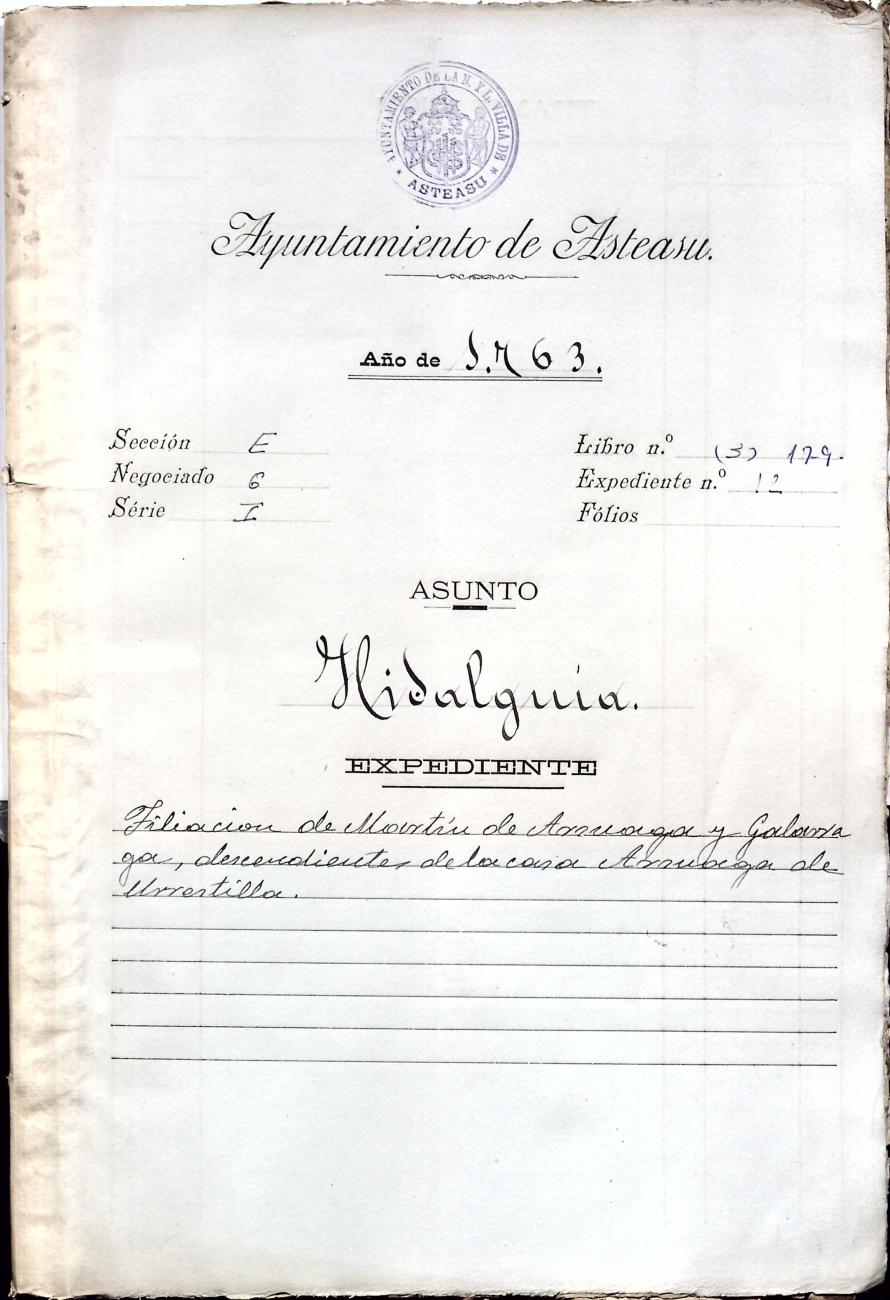 AYUNTAMIENTO DE LA N. Y L. VILLA DE
* ASTEASU *
Ayuntamiento de Asteasu.
Año de 1.763.
Sección E
Negociado 6
Série I
Libro n.º (3) 179.
Expediente n.º 12
Fólios
ASUNTO
Hidalguía.
EXPEDIENTE
Filiacion de Martín de Arzuaga y Galarra
ga, descendientes de la casa Arzuaga de
Urrestilla.